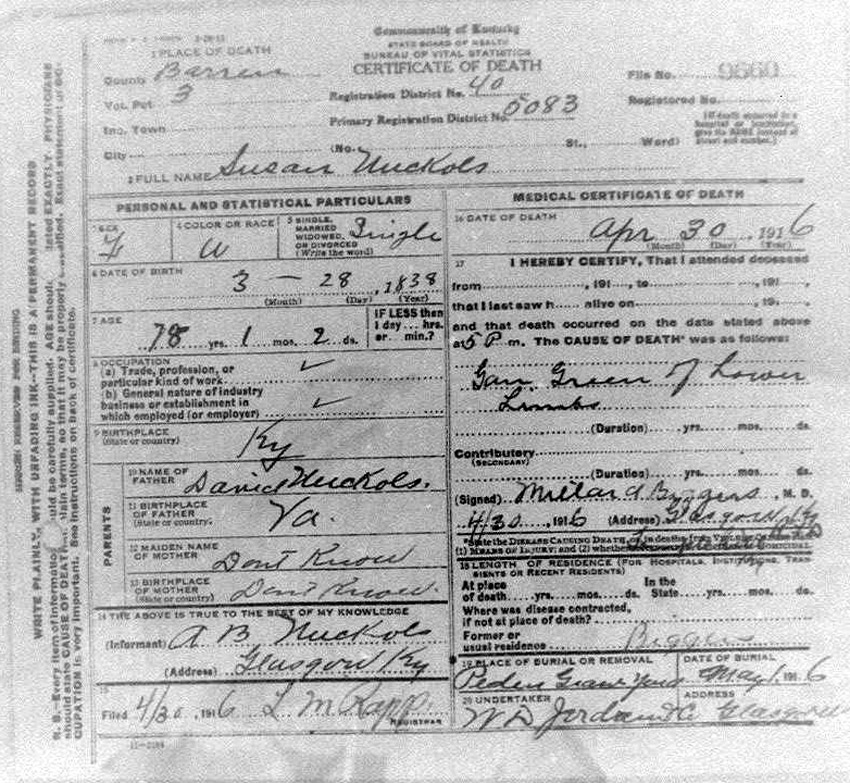 Commonwealth of Kentucky
STATE BOARD OF HEALTH
BUREAU OF VITAL STATISTICS
CERTIFICATE OF DEATH
1 PLACE OF DEATH
County Barren
Vot. Pct. 3
Inc. Town
City
Registration District No. 40
Primary Registration District No. 5083
File No. 9660
Registered No.
(No. St., Ward)
[If death occurred in a hospital or institution, give its NAME instead of street and number.]
2 FULL NAME Susan Nuckols
PERSONAL AND STATISTICAL PARTICULARS
3 SEX
F
4 COLOR OR RACE
W
5 SINGLE, MARRIED WIDOWED, OR DIVORCED (Write the word) Single
6 DATE OF BIRTH
3 — 28, 1838
(Month) (Day) (Year)
7 AGE
78 yrs. 1 mos. 2 ds.
IF LESS than 1 day... hrs. or... min.?
8 OCCUPATION
(a) Trade, profession, or
particular kind of work ✓
(b) General nature of industry
business or establishment in
which employed (or employer) ✓
9 BIRTHPLACE
(State or country) Ky
PARENTS
10 NAME OF FATHER David Nuckols.
11 BIRTHPLACE OF FATHER (State or country) Va.
12 MAIDEN NAME OF MOTHER Dont Know
13 BIRTHPLACE OF MOTHER (State or country) Dont Know.
14 THE ABOVE IS TRUE TO THE BEST OF MY KNOWLEDGE
(Informant) A B Nuckols
(Address) Glasgow Ky
15
Filed 4/30, 1916 L M Rapp.
REGISTRAR
11-2184
MEDICAL CERTIFICATE OF DEATH
16 DATE OF DEATH
Apr 30 1916
(Month) (Day) (Year)
17 I HEREBY CERTIFY, That I attended deceased
from , 191 , to , 191 ,
that I last saw h alive on , 191 ,
and that death occurred on the date stated above
at 5 P m. The CAUSE OF DEATH* was as follows:
Gan Green of Lower
Limbs
(Duration) yrs. mos. ds.
Contributory
(SECONDARY)
(Duration) yrs. mos. ds.
(Signed) Millard Biggers, M. D.
4/30, 1916 (Address) Glasgow, Ky
*State the DISEASE CAUSING DEATH,
(1) MEANS OF INJURY; and (2) whether
18 LENGTH OF RESIDENCE (FOR HOSPITALS, INSTITUTIONS, TRANSIENTS OR RECENT RESIDENTS)
At place of death yrs. mos. ds. In the State yrs. mos. ds.
Where was disease contracted,
if not at place of death?
Former or
usual residence Biggers
19 PLACE OF BURIAL OR REMOVAL
Peden Grave Yard
DATE OF BURIAL
May 1, 1916
20 UNDERTAKER
W D Jordan & Co
ADDRESS
Glasgow
WRITE PLAINLY, WITH UNFADING INK—THIS IS A PERMANENT RECORD